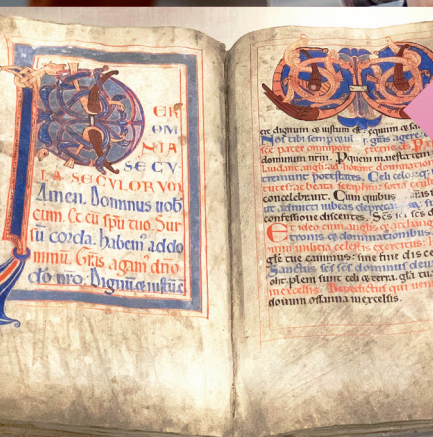 P
ER
OM
NIA
SECV
LA SECVLORVM
Amen. Dominus uob
cum. Et cū spū tuo. Sur
sū corda. habem addo
minū. Grās agam dno
dō nro. Dignū & iustū ē
ere dignum & iustum equum & sa
Nos tibi semp grās agere
scē pater omnipote eterne
dominum nrm. P quem maiestatem
Laudant angli
tremunt potestates. Celi celorq;
tutes: ac beata seraphim socia exul
concelebrant. Cum quibus
ut admitti iubeas depreca
confessione dicentes. Scs
Et ideo cum anglis & archang
tronis & dominationibus
mni militia celestis exercitus
glā tue canimus: sine fine dice
Sanctus scs scs dominus deus
oht. pleni sunt celi & terra. glā tua
inexcelsis. Benedictus qui ven
domini osanna inexcelsis.